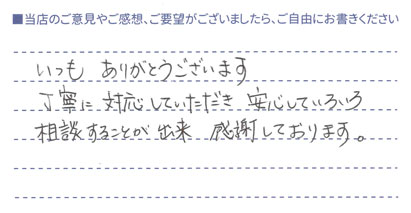 ■当店のご意見やご感想、ご要望がございましたら、ご自由にお書きください
いつも ありがとうございます
丁寧に 対応していただき 安心していろいろ
相談することが 出来 感謝しております。